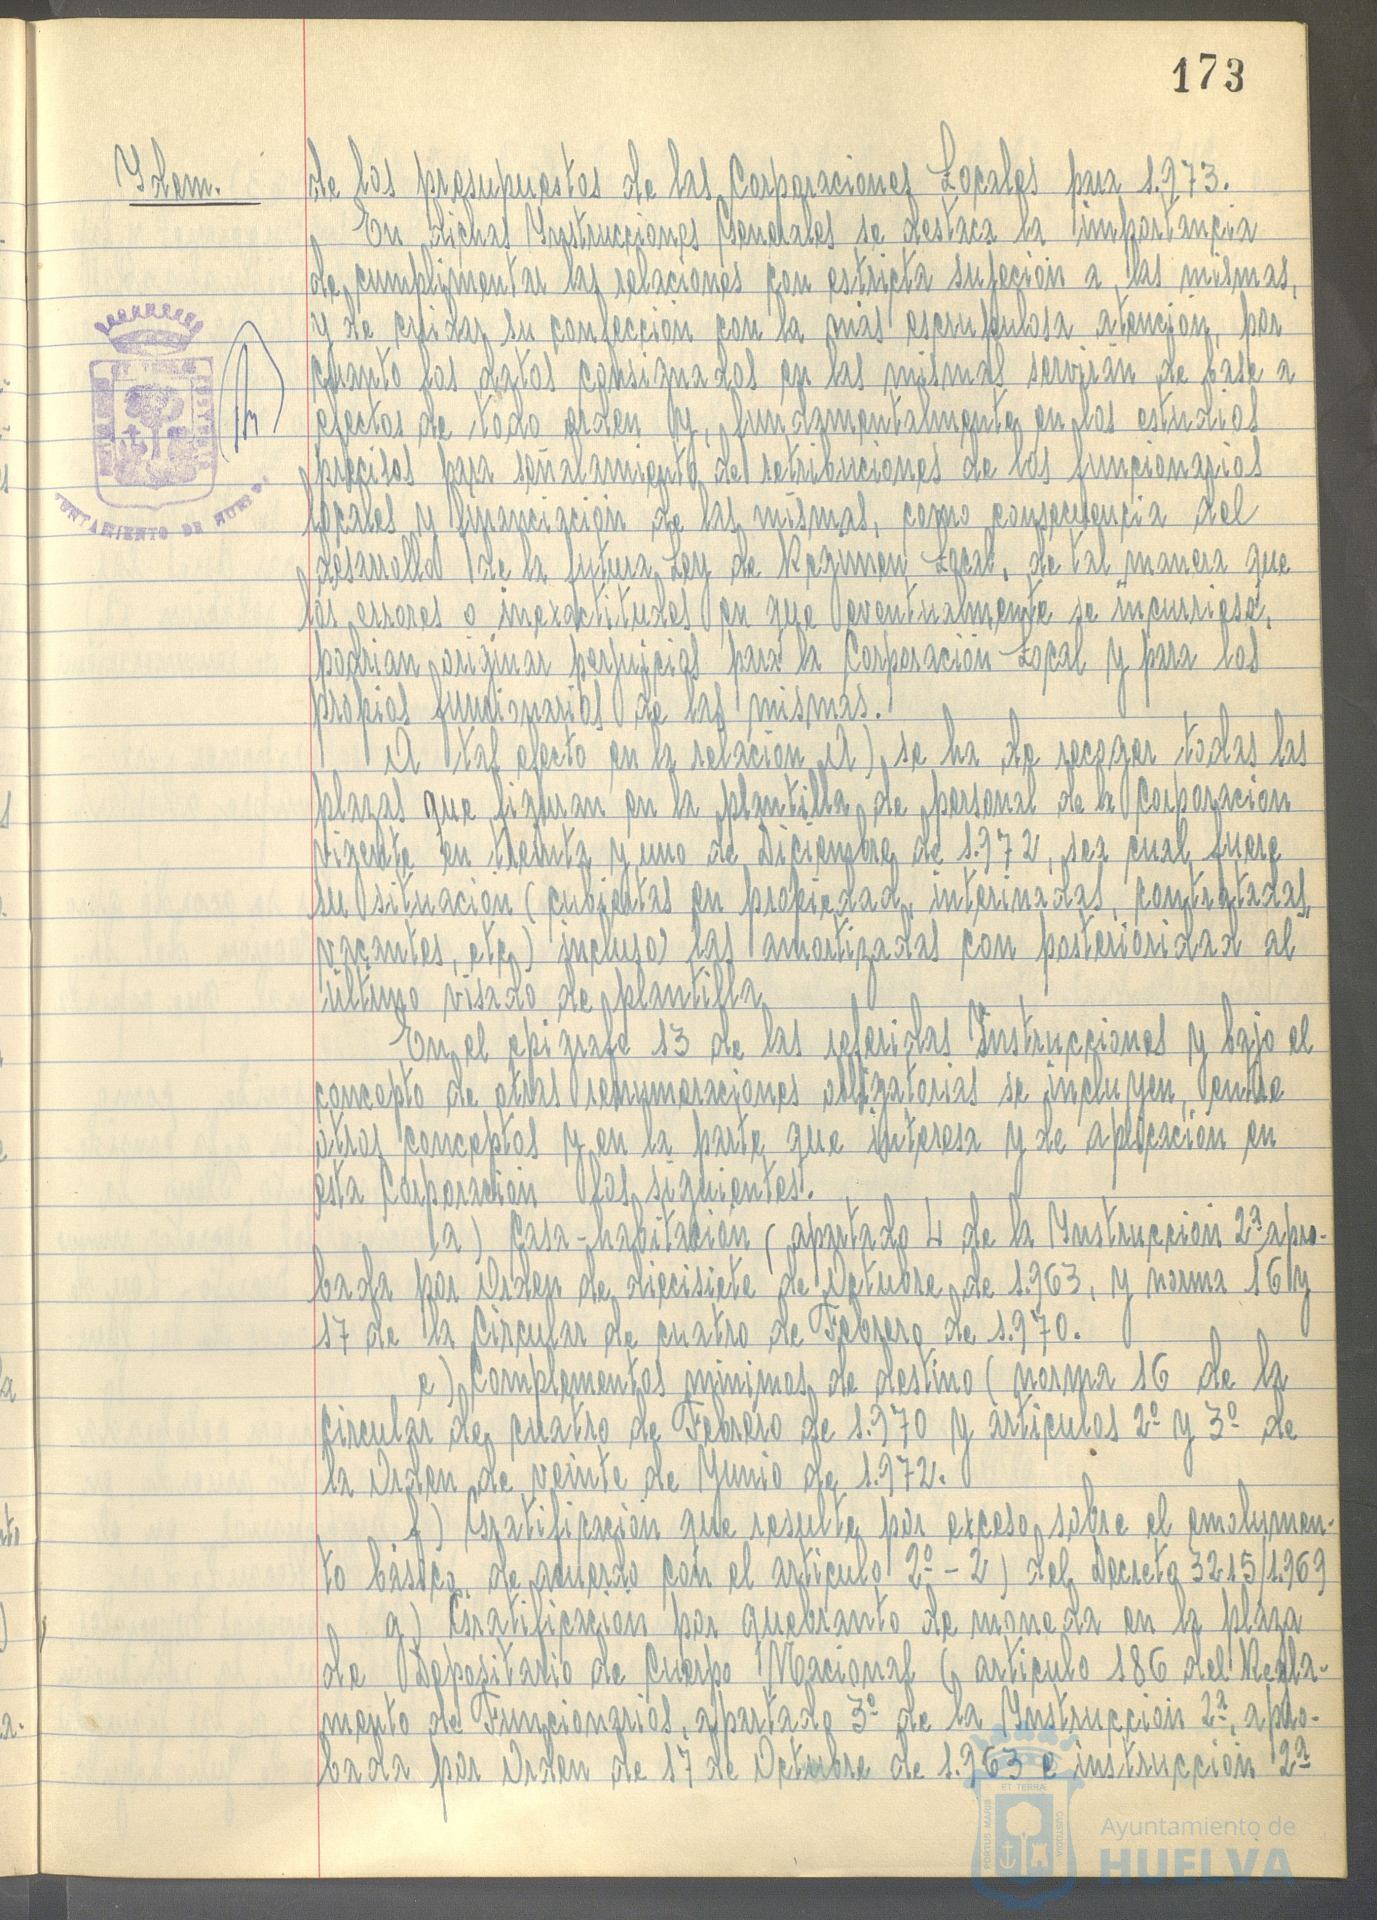 173
Ydem.
de los presupuestos de las Corporaciones Locales para 1.973.
En dichas Ynstrucciones Generales se destaca la importancia
de cumplimentar las relaciones con estricta sujeción a las mismas,
y de cuidar su confección con la más escrupulosa atención, por
cuanto los datos consignados en las mismas servirán de base a
efectos de todo orden y, fundamentalmente en los estudios
precisos para señalamiento de retribuciones de los funcionarios
locales y financiación de las mismas, como consecuencia del
desarrollo de la futura Ley de Regimen Local, de tal manera que
los errores o inexactitudes en que eventualmente se incurriese,
podrian originar perjuicios para la Corporación Local y para los
propios funcionarios de las mismas.
A tal efecto en la relación A) se ha de recoger todas las
plazas que figuran en la plantilla de personal de la Corporación
vigente en treinta y uno de Diciembre de 1.972, sea cual fuere
su situación (cubiertas en propiedad, interinadas, contratadas,
vacantes, etc) incluso las amortizadas con posterioridad al
último visado de plantilla
En el epigrafe 13 de las referidas Instrucciones y bajo el
concepto de otras remumeraciones obligatorias se incluyen, entre
otros conceptos y en la parte que interesa y de aplicación en
esta Corporación los siguientes:
a) Casa-habitación (apartado 4 de la Ynstrucción 2ª apro-
bada por Orden de diecisiete de Octubre de 1.963, y norma 16 y
17 de la Circular de cuatro de Febrero de 1.970.
e) Complementos minimos de destino (norma 16 de la
Circular de cuatro de Febrero de 1.970 y artículos 2º y 3º de
la Orden de veinte de Junio de 1.972.
f) Gratificación que resulte por exceso sobre el emolumen-
to básico, de acuerdo con el articulo 2º-2) del Decreto 3215/1.969
g) Gratificación por quebranto de moneda en la plaza
de Depositario de Cuerpo Nacional (articulo 186 del Regla-
mento de Funcionarios, apartado 3º de la Ynstrucción 2ª, apro-
bada por Orden de 17 de Octubre de 1.963 e instrucción 2ª
AYUNTAMIENTO DE HUELVA
PORTUS MARIS
ET TERRÆ
CUSTODIA
Ayuntamiento de
HUELVA